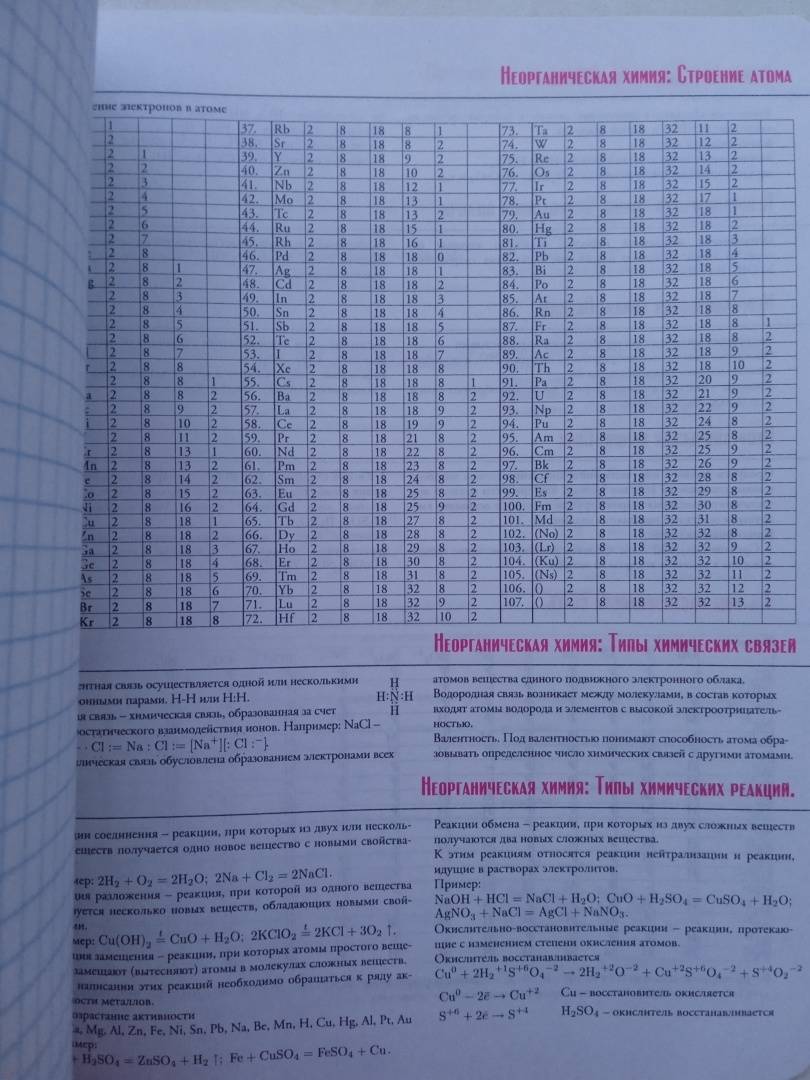 Неорганическая химия: Строение атома
ение электронов в атоме
1 37. Rb 2 8 18 8 1 73. Ta 2 8 18 32 11 2
2 38. Sr 2 8 18 8 2 74. W 2 8 18 32 12 2
2 1 39. Y 2 8 18 9 2 75. Re 2 8 18 32 13 2
2 2 40. Zn 2 8 18 10 2 76. Os 2 8 18 32 14 2
2 3 41. Nb 2 8 18 12 1 77. Ir 2 8 18 32 15 2
2 4 42. Mo 2 8 18 13 1 78. Pt 2 8 18 32 17 1
2 5 43. Tc 2 8 18 13 2 79. Au 2 8 18 32 18 1
2 6 44. Ru 2 8 18 15 1 80. Hg 2 8 18 32 18 2
2 7 45. Rh 2 8 18 16 1 81. Ti 2 8 18 32 18 3
2 8 46. Pd 2 8 18 18 0 82. Pb 2 8 18 32 18 4
2 8 1 47. Ag 2 8 18 18 1 83. Bi 2 8 18 32 18 5
g 2 8 2 48. Cd 2 8 18 18 2 84. Po 2 8 18 32 18 6
2 8 3 49. In 2 8 18 18 3 85. At 2 8 18 32 18 7
2 8 4 50. Sn 2 8 18 18 4 86. Rn 2 8 18 32 18 8
2 8 5 51. Sb 2 8 18 18 5 87. Fr 2 8 18 32 18 8 1
2 8 6 52. Te 2 8 18 18 6 88. Ra 2 8 18 32 18 8 2
l 2 8 7 53. I 2 8 18 18 7 89. Ac 2 8 18 32 18 9 2
r 2 8 8 54. Xe 2 8 18 18 8 90. Th 2 8 18 32 18 10 2
2 8 8 1 55. Cs 2 8 18 18 8 1 91. Pa 2 8 18 32 20 9 2
a 2 8 8 2 56. Ba 2 8 18 18 8 2 92. U 2 8 18 32 21 9 2
c 2 8 9 2 57. La 2 8 18 18 9 2 93. Np 2 8 18 32 22 9 2
i 2 8 10 2 58. Ce 2 8 18 19 9 2 94. Pu 2 8 18 32 24 8 2
2 8 11 2 59. Pr 2 8 18 21 8 2 95. Am 2 8 18 32 25 8 2
r 2 8 13 1 60. Nd 2 8 18 22 8 2 96. Cm 2 8 18 32 25 9 2
Mn 2 8 13 2 61. Pm 2 8 18 23 8 2 97. Bk 2 8 18 32 26 9 2
e 2 8 14 2 62. Sm 2 8 18 24 8 2 98. Cf 2 8 18 32 28 8 2
Co 2 8 15 2 63. Eu 2 8 18 25 8 2 99. Es 2 8 18 32 29 8 2
Ni 2 8 16 2 64. Gd 2 8 18 25 9 2 100. Fm 2 8 18 32 30 8 2
Cu 2 8 18 1 65. Tb 2 8 18 27 8 2 101. Md 2 8 18 32 31 8 2
Zn 2 8 18 2 66. Dy 2 8 18 28 8 2 102. (No) 2 8 18 32 32 8 2
Ga 2 8 18 3 67. Ho 2 8 18 29 8 2 103. (Lr) 2 8 18 32 32 9 2
Ge 2 8 18 4 68. Er 2 8 18 30 8 2 104. (Ku) 2 8 18 32 32 10 2
As 2 8 18 5 69. Tm 2 8 18 31 8 2 105. (Ns) 2 8 18 32 32 11 2
Se 2 8 18 6 70. Yb 2 8 18 32 8 2 106. () 2 8 18 32 32 12 2
Br 2 8 18 7 71. Lu 2 8 18 32 9 2 107. () 2 8 18 32 32 13 2
Kr 2 8 18 8 72. Hf 2 8 18 32 10 2
Неорганическая химия: Типы химических связей
ентная связь осуществляется одной или несколькими
онными парами. H-H или H:H.
я связь – химическая связь, образованная за счет
остатического взаимодействия ионов. Например: NaCl –
· Cl := Na : Cl := [Na⁺][: Cl :⁻].
лическая связь обусловлена образованием электронами всех
H
H:N:H
H
атомов вещества единого подвижного электронного облака.
Водородная связь возникает между молекулами, в состав которых
входят атомы водорода и элементов с высокой электроотрицатель-
ностью.
Валентность. Под валентностью понимают способность атома обра-
зовывать определенное число химических связей с другими атомами.
Неорганическая химия: Типы химических реакций.
ции соединения – реакции, при которых из двух или несколь-
еществ получается одно новое вещество с новыми свойства-
мер: 2H₂ + O₂ = 2H₂O; 2Na + Cl₂ = 2NaCl.
ция разложения – реакция, при которой из одного вещества
уется несколько новых веществ, обладающих новыми свой-
ми.
мер: Cu(OH)₂ =ᵗ CuO + H₂O; 2KClO₂ =ᵗ 2KCl + 3O₂ ↑.
ция замещения – реакции, при которых атомы простого веще-
замещают (вытесняют) атомы в молекулах сложных веществ.
написании этих реакций необходимо обращаться к ряду ак-
ности металлов.
озрастание активности
a, Mg, Al, Zn, Fe, Ni, Sn, Pb, Na, Be, Mn, H, Cu, Hg, Al, Pt, Au
мер:
+ H₂SO₄ = ZnSO₄ + H₂ ↑; Fe + CuSO₄ = FeSO₄ + Cu.
Реакции обмена – реакции, при которых из двух сложных веществ
получаются два новых сложных вещества.
К этим реакциям относятся реакции нейтрализации и реакции,
идущие в растворах электролитов.
Пример:
NaOH + HCl = NaCl + H₂O; CuO + H₂SO₄ = CuSO₄ + H₂O;
AgNO₃ + NaCl = AgCl + NaNO₃.
Окислительно-восстановительные реакции – реакции, протекаю-
щие с изменением степени окисления атомов.
Окислитель восстанавливается
Cu⁰ + 2H₂⁺¹S⁺⁶O₄⁻² → 2H₂⁺²O⁻² + Cu⁺²S⁺⁶O₄⁻² + S⁺⁴O₂⁻²
Cu⁰ − 2ē → Cu⁺² Cu – восстановитель окисляется
S⁺⁶ + 2ē → S⁺⁴ H₂SO₄ – окислитель восстанавливается